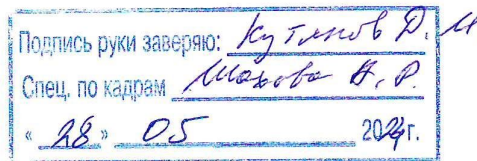 Подпись руки заверяю: Кутянов Д. М
Спец. по кадрам Шахова А. Р.
« 28 » 05 2024г.